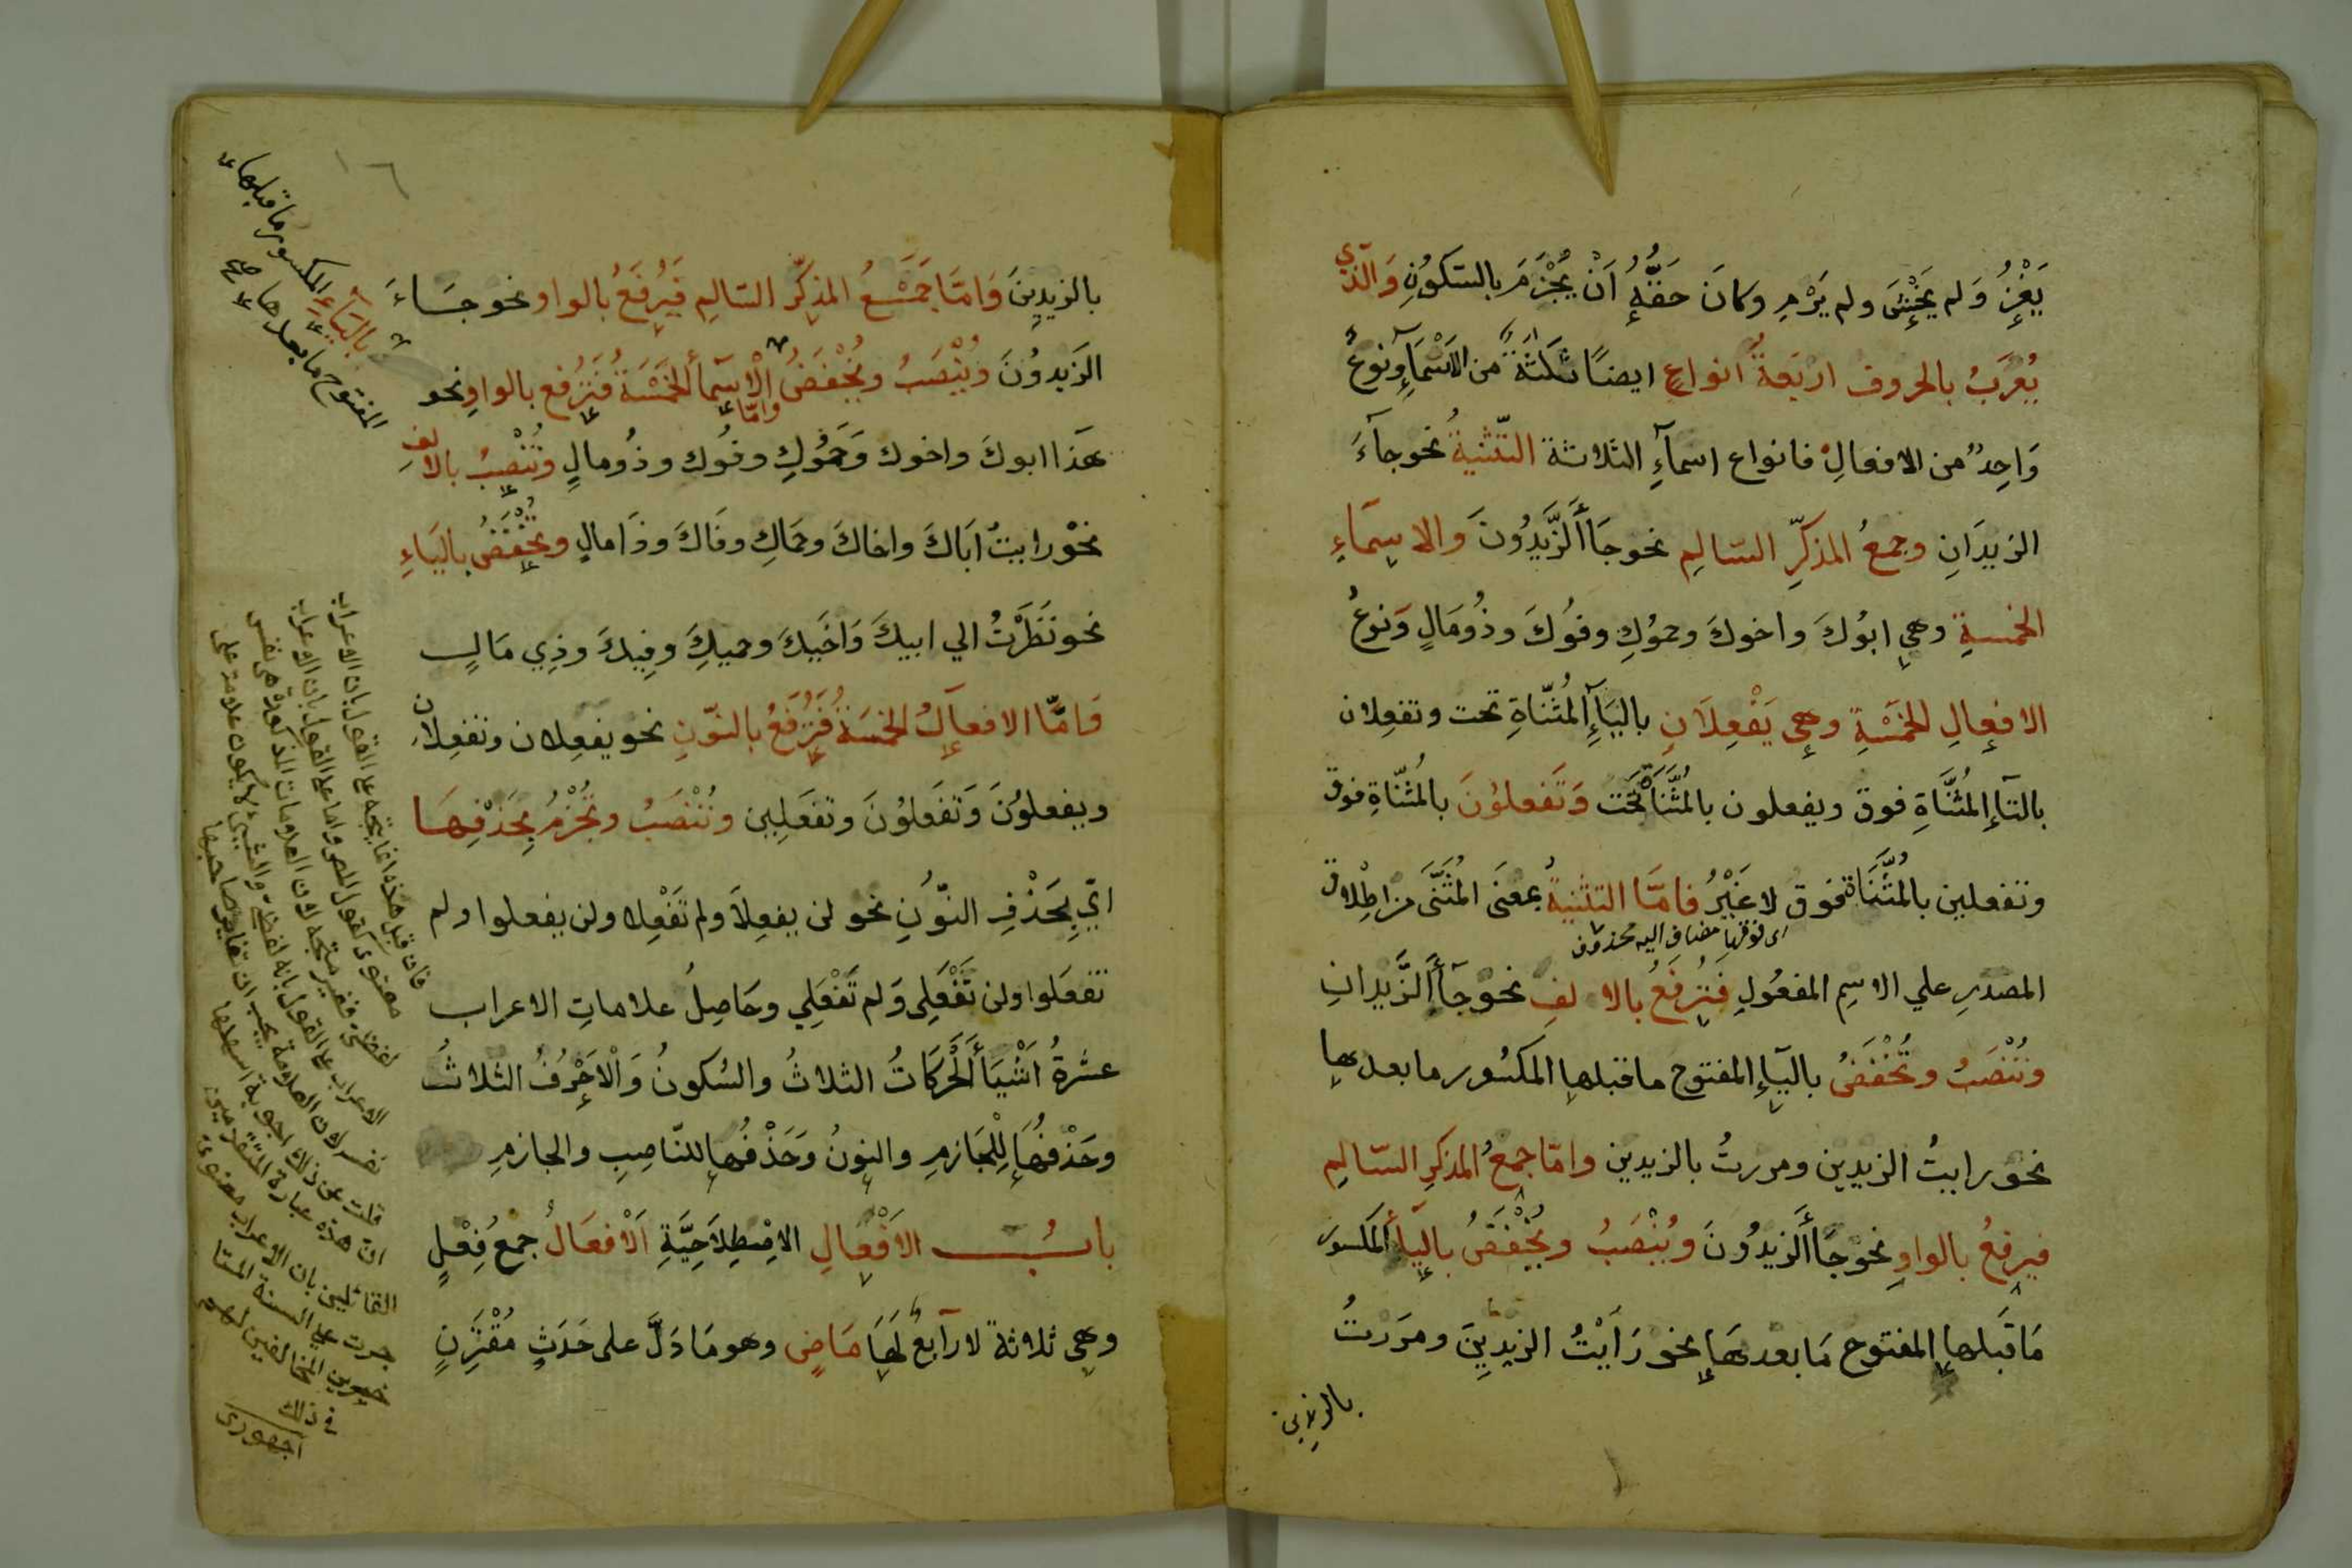 يَغْزُ وَلم يَخْشَ ولم يَرْمِ وكانَ حَقُّهُ اَنْ يُجْزَمَ بالسّكُونِ وَالَّذي
يُعْرَبُ بالحروف اربَعةُ انواعٍ ايضًا ثلثَةٌ من الاَسْمَآءِ ونوعٌ
وَاحِدٌ من الافعالِ فانواع اسمآءِ الثلاثة التّثنيةُ نحو جآءَ
الزيدَانِ وجمعُ المذكّرِ السّالِمِ نحو جَاأَلزَّيدُونَ والاسِمَاءِ
الخمسةِ وهي ابُوكَ واخوكَ وحموُكِ وفوُكَ وذُومَالٍ وَنوعُ
الافعالِ الخمَسْةِ وهي يَفْعِلَانِ باليَآءِ المُثنّاةِ تحت وتفعِلان
بالتآءِ المُثنَّاةِ فوق ويفعلون بالمُثنَّاة تَحَت وَتَفعلوُنَ بالمُثنّاةِ فوق
وتفعلين بالمُثَنَّاة فوق لا غَيْرُ فامّا التثنيةُ بمعنَى المُثَنَّى من اطْلاق
اى فوقها مضاف اليه محذوف
المصدرِ علي الاسِمِ المفعُولِ فَتُرفَعُ بالالفِ نحو جآأَلزَّيدانِ
وتُنْصَبُ وتُخْفَضُ باليَآءِ المفتوح ماقبلها المكسُور مابعدها
نحو رايتُ الزيدين ومررتُ بالزيدين وامّا جمعُ المذكرِ السّالِمِ
فيرفعُ بالواوِ نحو جَاأَلزيدُونَ ويُنْصَبُ ويُخْفَضُ باليَآءِ المكسور
مَاقَبلها المفتوح مَابعدهَا نحو رَاَيْتُ الزيدِينَ ومرَرتُ
بالزيدين
١٦
بالزيدِينَ وَامّا جَمَعُ المذكّرِ السّالِمِ فَيُرفَعُ بالواو نحو جَاءَ
الزيدُونَ ويُنْصَبُ ويُخْفَضُ وامّا الْاسمآأُلخَمْسَةُ فَتُرفع بالواوِ نحو
باليَآءِ المكسور ماقبلها
المفتوح مابعدها صح
هَذا ابوكَ واخوك وَحَموُكِ وفوُك وذُومالٍ وتُنْصبُ بالالفِ
نحوْ رايتُ اَبَاكَ واخاكَ وحمَاكِ وفَاكَ وذَامالٍ وتُخْفَضُ باليَاءِ
نحو نَظَرْتُ الي ابيكَ وَاخَيكَ وحميكِ وفِيكَ وذِي مَالٍ
وَامَّا الافعالُ الخمَسَةُ فَتُرفَعُ بالنّونِ نحو يفعِلان وتفعِلان
ويفعلوُنَ وَتَفعَلوُنَ وتفعَلِين وتُنْصَبُ وتُجْزَمُ بِحَذْفِهَا
ايّ بِحَذْفِ النّونِ نحو لن يفعِلاَ ولم تَفْعِلا ولن يفعلوا ولم
تفعَلوا ولن تَفْعَلِى وَلم تَفْعَلِي وحَاصِلُ علاماتِ الاعراب
عشْرةُ اَشْيَأَ ألحَرَكَاتُ الثلاثُ والسُكونُ وَالْاَحْرُفُ الثلاثُ
وحَذْفُهَا لِلْجَازمِ والنونُ وَحَذْفُها للنّاصِبِ والجازمِ
بابُ الاَفْعَالِ الاصْطِلاَحِيَّةِ اَلْافعَالُ جمْعُ فِعْلٍ
وهي ثلاثةٌ لا رآبعَ لَهَا مَاضٍ وهو مَا دَلَّ على حَدَثٍ مُقْتَرِنٍ
فان قيل هذه انما يتجه على القول بان الاعراب
لفظي فغير متجه لان العلامات المذكورة هى نفس
الاعراب على القول بانه لفظى والشيئ لا يكون علامة على
نفسه لان العلامة يجب ان تغاير صاحبها
قلت عن ذلك اجوبة اسهلها
ان هذه عبارة المتقدمين
القائلين بان الاعراب معنوى
جرت على السنة المتا
خرين المخالفين لهم
فى ذلك
اجهورى